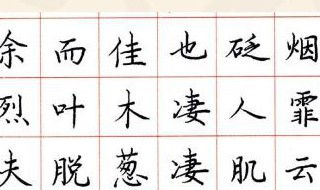 烟霏云
砭人肌
也凄凄
佳木葱
而叶脱
余烈夫